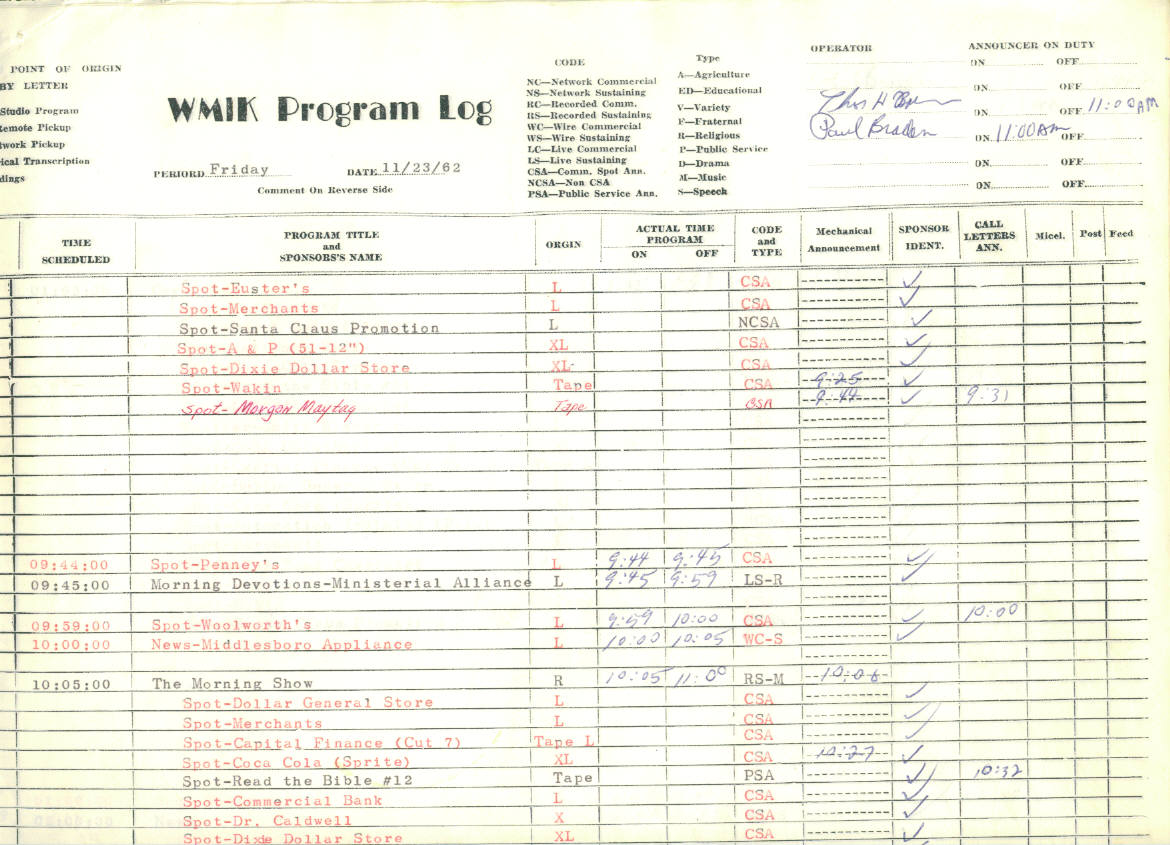 POINT OF ORIGIN
BY LETTER
Studio Program
Remote Pickup
twork Pickup
ical Transcription
dings
WMIK Program Log
PERIORD Friday DATE 11/23/62
Comment On Reverse Side
CODE
NC—Network Commercial
NS—Network Sustaining
RC—Recorded Comm.
RS—Recorded Sustaining
WC—Wire Commercial
WS—Wire Sustaining
LC—Live Commercial
LS—Live Sustaining
CSA—Comm. Spot Ann.
NCSA—Non CSA
PSA—Public Service Ann.
Type
A—Agriculture
ED—Educational
V—Variety
F—Fraternal
R—Religious
P—Public Service
D—Drama
M—Music
S—Speech
OPERATOR ANNOUNCER ON DUTY
ON OFF
ON OFF
Thos H ON OFF 11:00AM
Paul Braden ON 11:00AM OFF
ON OFF
ON OFF
TIME SCHEDULED PROGRAM TITLE and SPONSORS'S NAME ORGIN ACTUAL TIME PROGRAM ON OFF CODE and TYPE Mechanical Announcement SPONSOR IDENT. CALL LETTERS ANN. Micel. Post Feed
Spot-Euster's L CSA ✓
Spot-Merchants L CSA ✓
Spot-Santa Claus Promotion L NCSA ✓
Spot-A & P (51-12") XL CSA ✓
Spot-Dixie Dollar Store XL CSA ✓
Spot-Wakin Tape CSA 9:25 ✓
Spot- Morgan Maytag Tape CSA 9:44 ✓ 9:31
09:44:00 Spot-Penney's L 9:44 9:45 CSA ✓
09:45:00 Morning Devotions-Ministerial Alliance L 9:45 9:59 LS-R ✓
09:59:00 Spot-Woolworth's L 9:59 10:00 CSA ✓ 10:00
10:00:00 News-Middlesboro Appliance L 10:00 10:05 WC-S ✓
10:05:00 The Morning Show R 10:05 11:00 RS-M 10:06
Spot-Dollar General Store L CSA ✓
Spot-Merchants L CSA ✓
Spot-Capital Finance (Cut 7) Tape L CSA ✓
Spot-Coca Cola (Sprite) XL CSA 10:27 ✓
Spot-Read the Bible #12 Tape PSA ✓ 10:32
Spot-Commercial Bank L CSA ✓
Spot-Dr. Caldwell X CSA ✓
Spot-Dixie Dollar Store XL CSA ✓